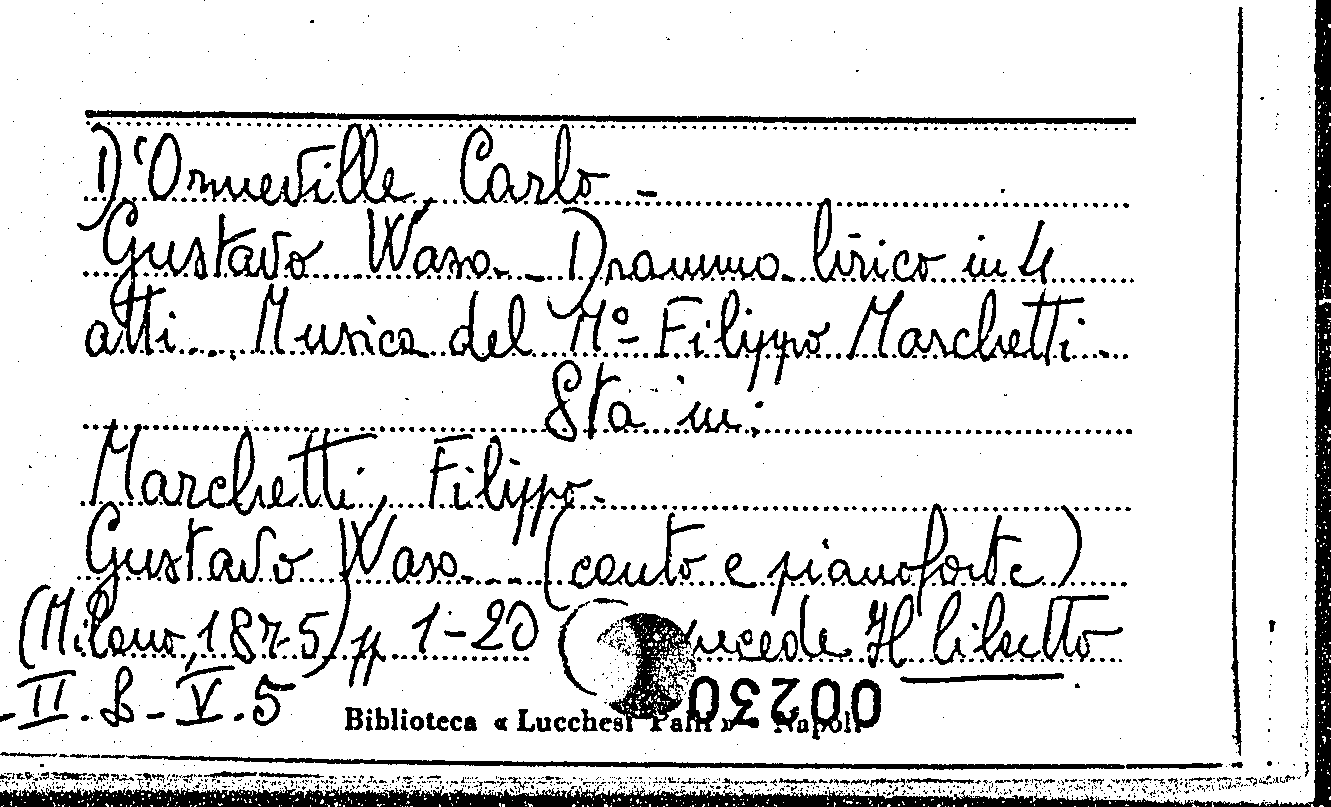 D'Ormeville, Carlo -
Gustavo Wasa - Dramma lirico in 4
atti... Musica del Mº Filippo Marchetti -
Sta in:
Marchetti, Filippo -
Gustavo Wasa... (canto e pianoforte)
(Milano, 1875) pp 1-20 precede il libretto
II. B - V. 5
Biblioteca « Lucchesi Palli » Napoli
00230